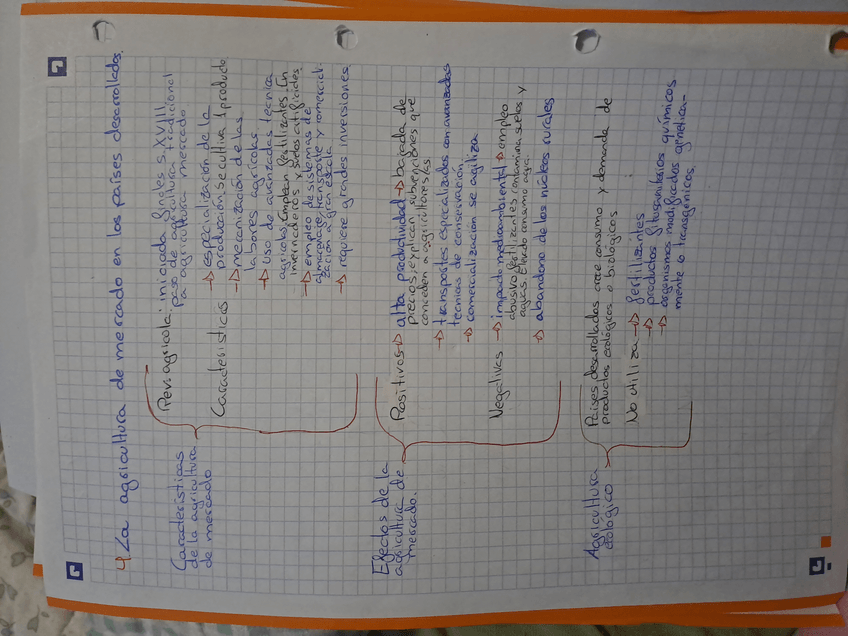 4 La agricultura de mercado en los países desarrollados.
Características
de la agricultura
de mercado
Rev. agrícola: iniciada finales S.XVIII,
paso de agricultura tradicional
a agricultura mercado
Características → especialización de la
producción se cultiva 1 producto
→ mecanización de las
labores agrícolas
→ uso de avanzadas técnicas
agrícolas. Emplean fertilizantes. En
invernaderos y suelos artificiales.
→ empleo de sistemas de
almacenaje, transporte y comerciali-
zación a gran escala
→ requiere grandes inversiones
Efectos de la
agricultura de
mercado.
Positivos → alta productividad → bajada de
precios, explican subvenciones que
conceden a agricultores/as
→ transportes especializados con avanzadas
técnicas de conservación.
→ comercialización se agiliza
Negativas → impacto medioambiental → empleo
abusivo fertilizantes contamina suelos y
aguas. Elevado consumo agua.
→ abandono de los núcleos rurales
Agricultura
ecológico
Países desarrollados crece consumo y demanda de
productos ecológicos o biológicos
No utiliza → fertilizantes
→ productos fitosanitarios químicos
→ organismos modificados genetica-
mente o transgénicos.